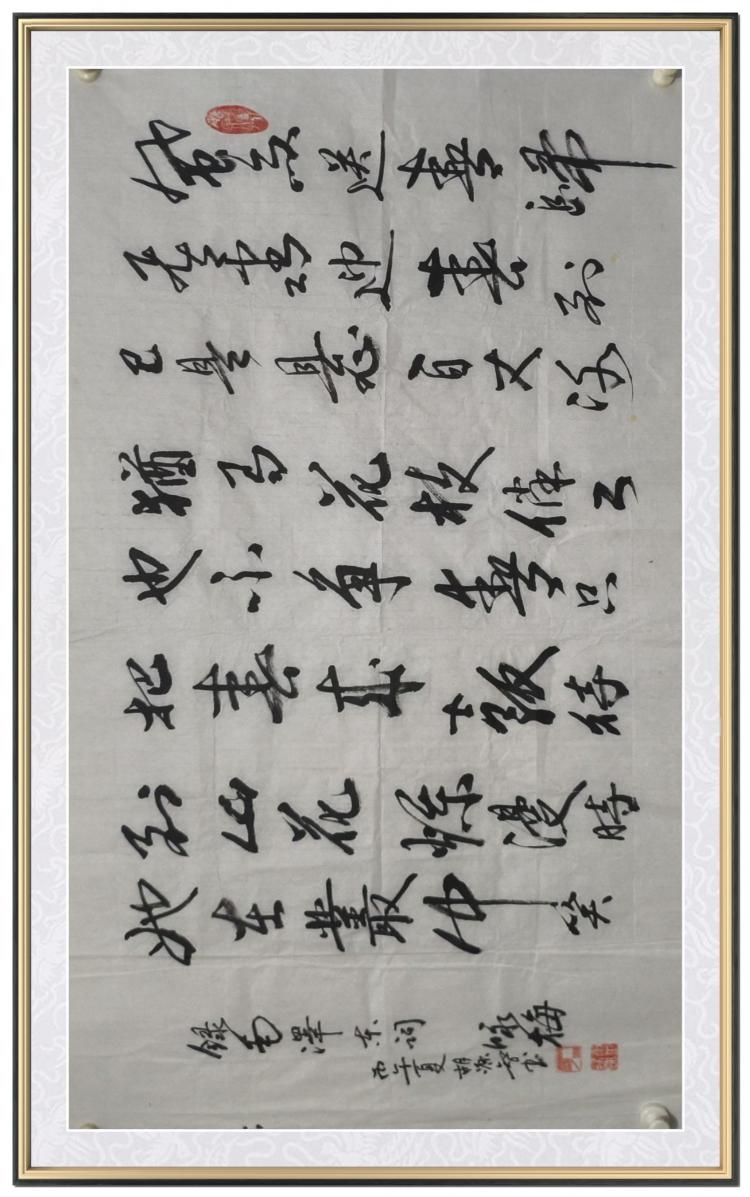 風雨送春歸
飛雪迎春到
已是懸百丈冰
猶有花枝俏々
也不爭春只
把春來報待
到山花爛漫時
她在叢中笑
錄毛澤东词 咏梅
丙午夏 胡